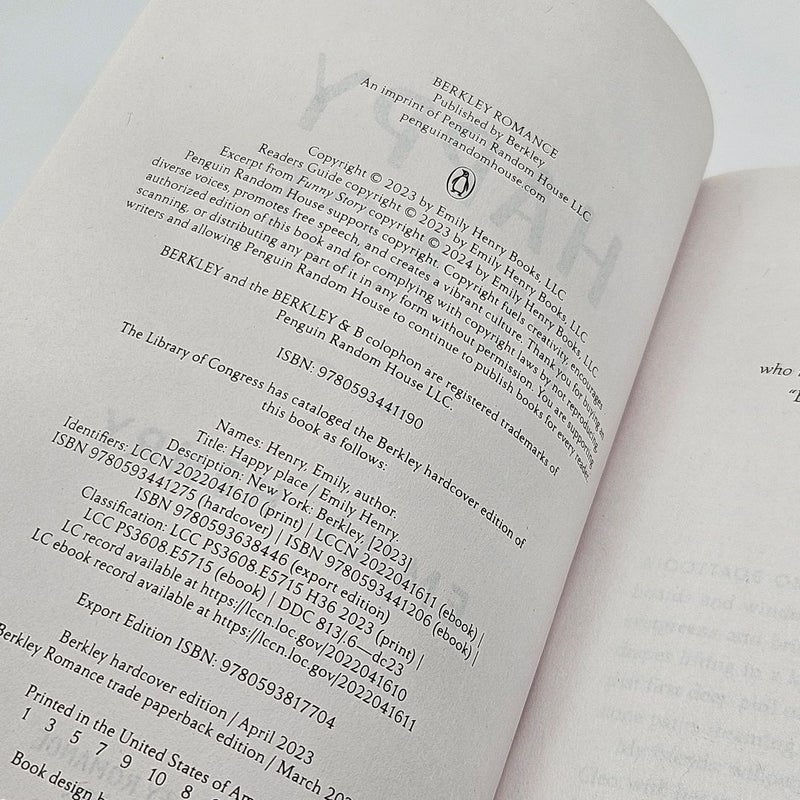 BERKLEY ROMANCE
Published by Berkley
An imprint of Penguin Random House LLC
penguinrandomhouse.com
Copyright © 2023 by Emily Henry Books, LLC
Readers Guide copyright © 2023 by Emily Henry Books, LLC
Excerpt from Funny Story copyright © 2024 by Emily Henry Books, LLC
Penguin Random House supports copyright. Copyright fuels creativity, encourages
diverse voices, promotes free speech, and creates a vibrant culture. Thank you for buying an
authorized edition of this book and for complying with copyright laws by not reproducing,
scanning, or distributing any part of it in any form without permission. You are supporting
writers and allowing Penguin Random House to continue to publish books for every reader.
BERKLEY and the BERKLEY & B colophon are registered trademarks of
Penguin Random House LLC.
ISBN: 9780593441190
The Library of Congress has cataloged the Berkley hardcover edition of
this book as follows:
Names: Henry, Emily, author.
Title: Happy place / Emily Henry.
Description: New York: Berkley, [2023]
Identifiers: LCCN 2022041610 (print) | LCCN 2022041611 (ebook) |
ISBN 9780593441275 (hardcover) | ISBN 9780593441206 (ebook) |
ISBN 9780593638446 (export edition)
Classification: LCC PS3608.E5715 H36 2023 (print) |
LCC PS3608.E5715 (ebook) | DDC 813/.6—dc23
LC record available at https://lccn.loc.gov/2022041610
LC ebook record available at https://lccn.loc.gov/2022041611
Export Edition ISBN: 9780593817704
Berkley hardcover edition / April 2023
Berkley Romance trade paperback edition / March
Printed in the United States of
1 3 5 7 9 10 8
Book design
who